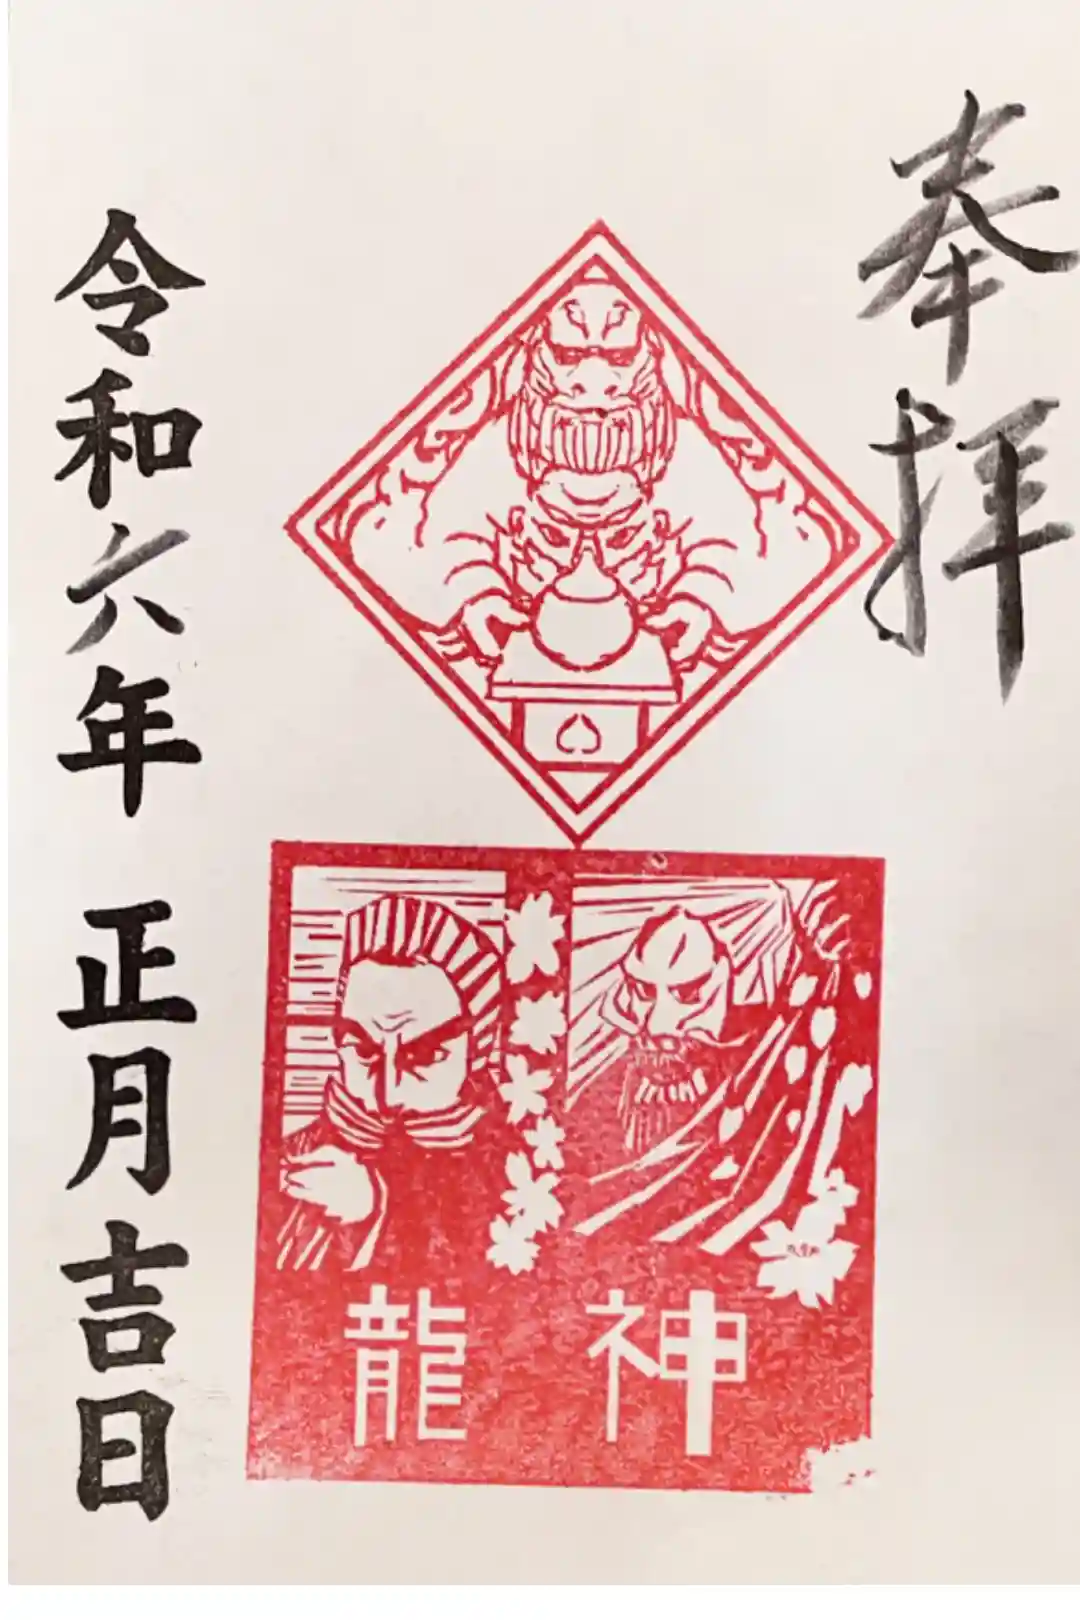 奉拝
神龍
令和六年 正月吉日